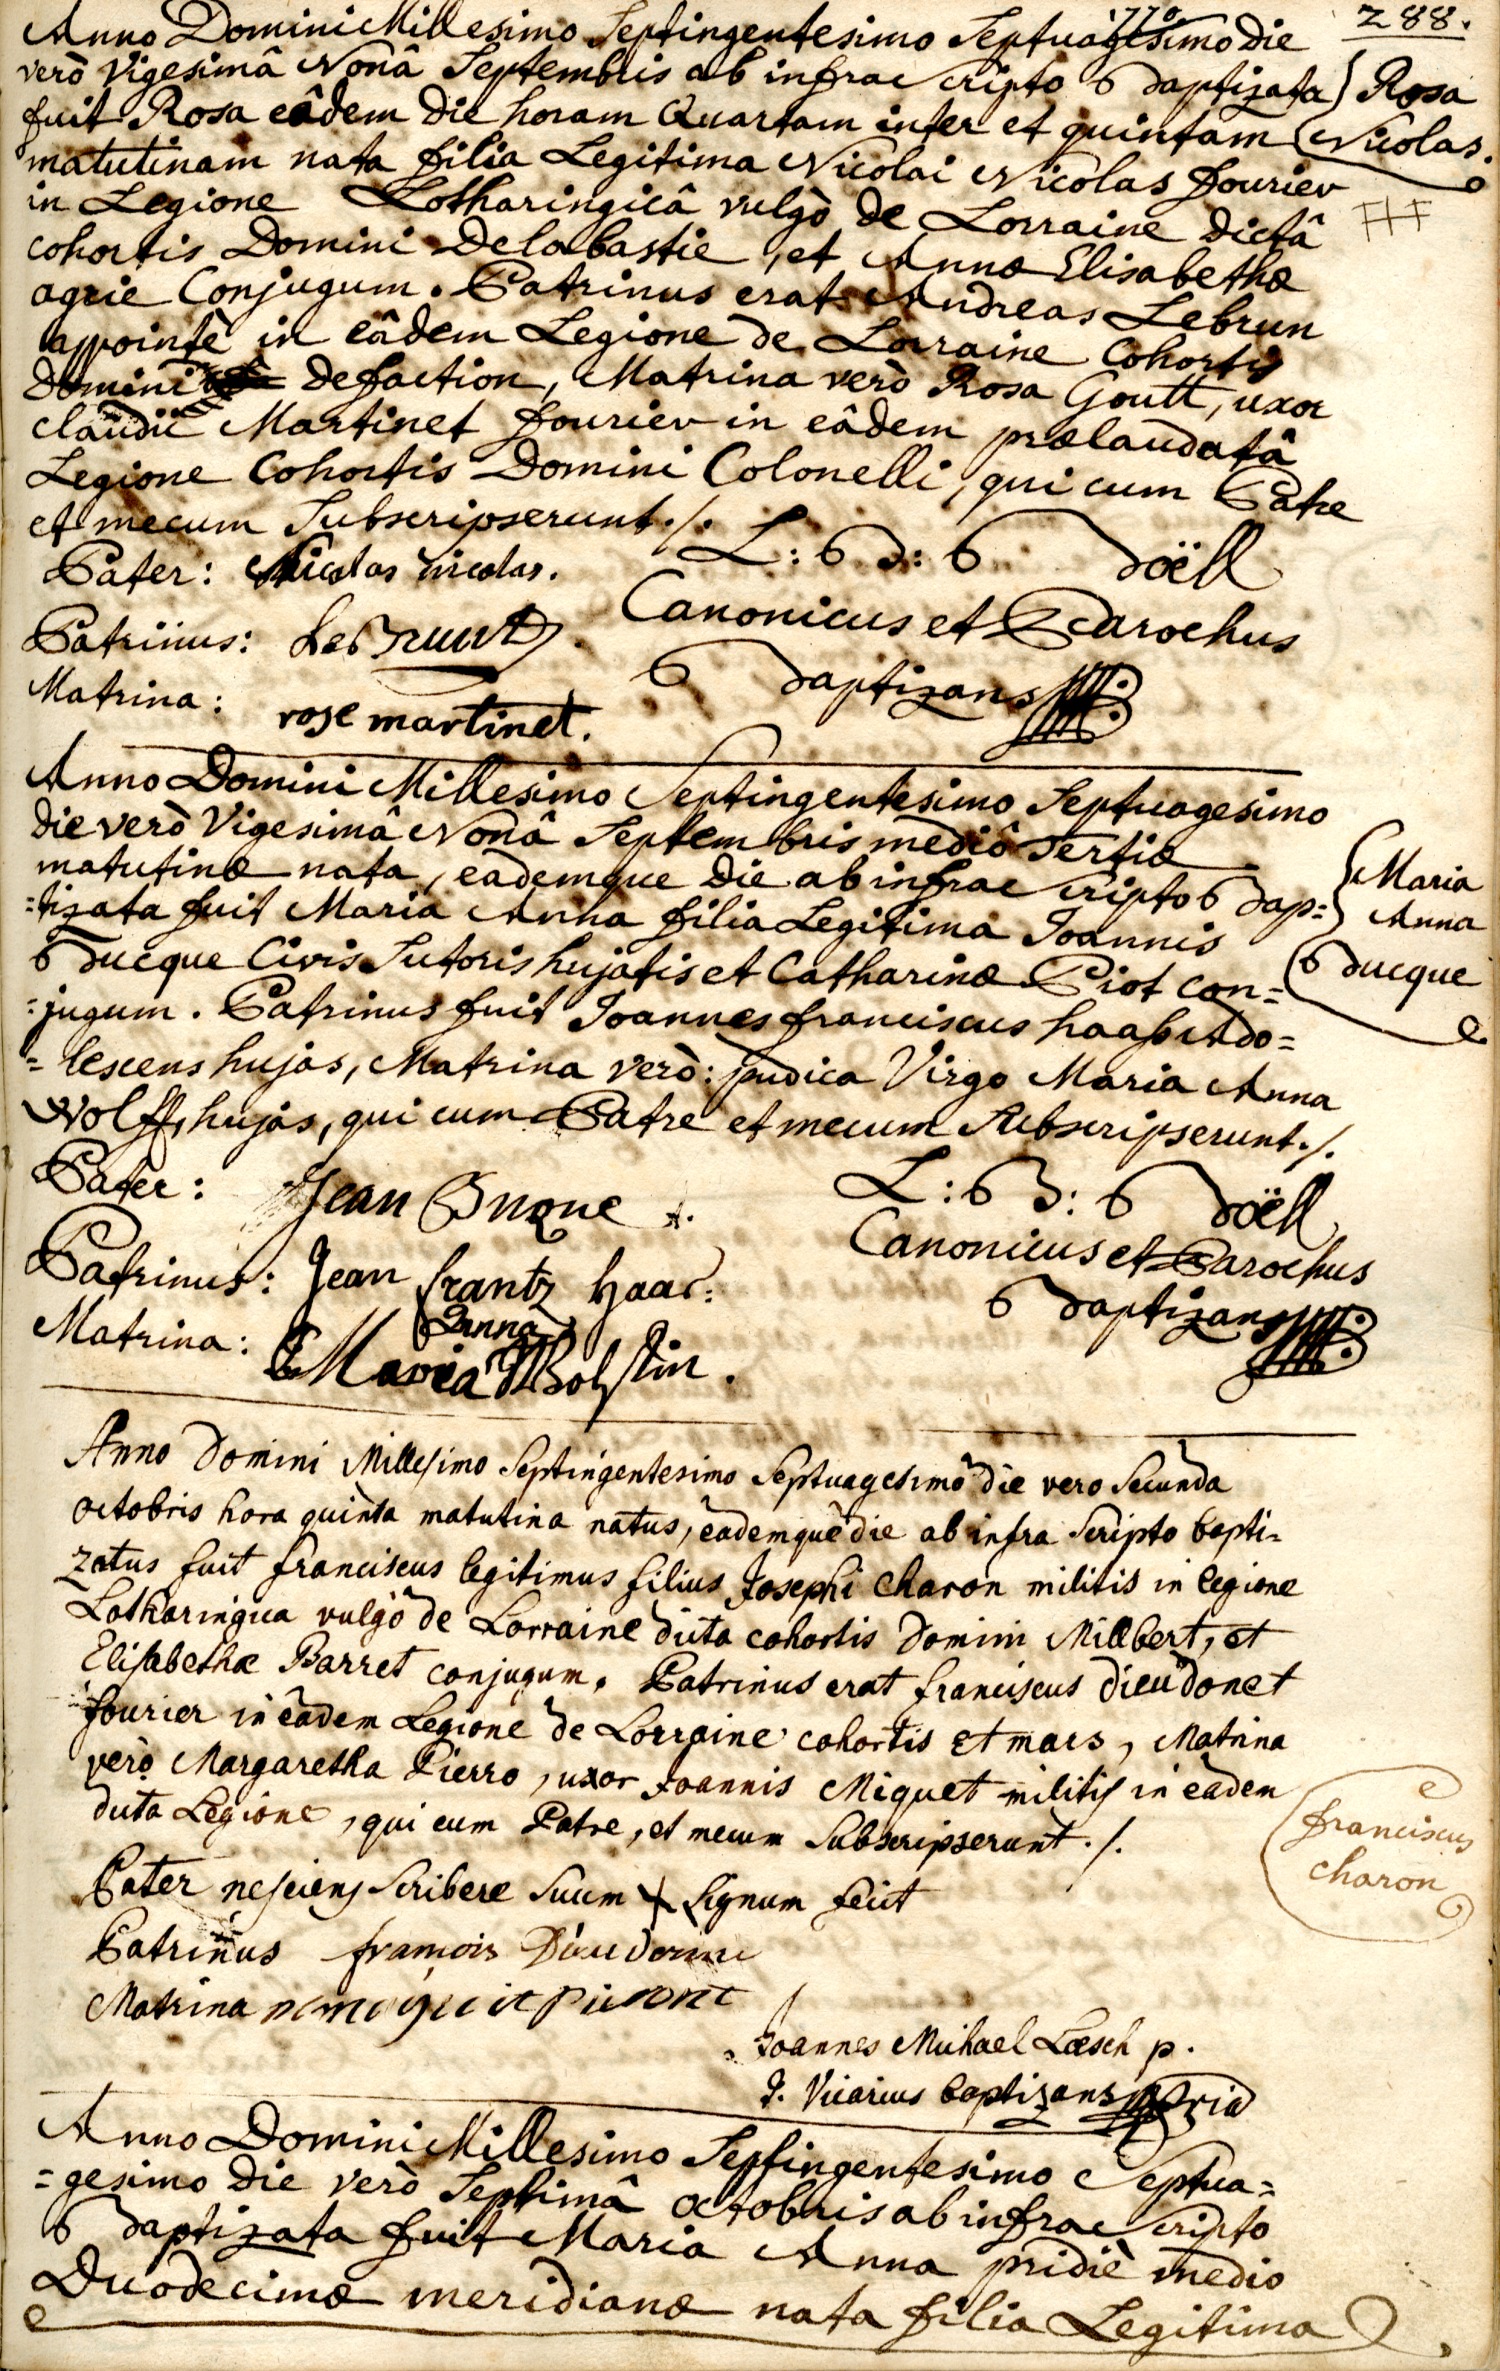 1770. 288.
Anno Domini Millesimo Septingentesimo Septuagesimo die
verò Vigesimâ Nonâ Septembris ab infrae scripto Baptizata
fuit Rosa eâdem die horam Quartam inter et quintam
matutinam nata filia Legitima Nicolai Nicolas fourier
in Legione Lotharingicâ vulgò de Lorraine dictâ
cohortis Domini Delabastie, et Annæ Elisabethæ
agrie Conjugum. Patrinus erat Andreas Lebrun
appointè in eâdem Legione de Lorraine Cohortis
Domini Defaction, Matrina verò Rosa Goutt, uxor
claudii Martinet fourier in eâdem prælaudatâ
Legione Cohortis Domini Colonelli, qui cum Patre
et mecum Subscripserunt./.
Rosa
Nicolas.
Pater: Nicolas nicolas.
Patrinus: LeBrun
Matrina: rose martinet.
L: B: Boëll
Canonicus et Parochus
Baptizans
Anno Domini Millesimo Septingentesimo Septuagesimo
die verò Vigesimâ Nonâ Septembris mediô Tertiæ
matutinæ nata, eademque die ab infrae scripto Bap=
=tizata fuit Maria Anna filia Legitima Joannis
Bucque Civis Sutoris hujatis et Catharinæ Piot con=
=jugum. Patrinus fuit Joannes franciscus haas Ado=
=lescens hujas, Matrina verò: pudica Virgo Maria Anna
Wolff, hujas, qui cum Patre et mecum Subscripserunt./.
Maria
Anna
Bucque
Pater: Jean Buque
Patrinus: Jean frantz haas:
Matrina: Maria Anna
L: B: Boëll
Canonicus et Parochus
Baptizans
Anno Domini Millesimo Septingentesimo Septuagesimo die vero Secunda
octobris hora quinta matutina natus, eademque die ab infra Scripto bapti=
zatus fuit franciscus legitimus filius Josephi Charon militis in legione
Lotharingica vulgò de Lorraine dicta cohortis Domini Millbert, et
Elisabethæ Barret conjugum. Patrinus erat franciscus dieudonet
fourier in eâdem Legione de Lorraine cohortis Et mars, Matrina
verò Margaretha Pierro, uxor Joannis Miquet militis in eadem
dicta Legione, qui cum Patre, et mecum Subscripserunt./.
franciscus
charon
Pater nesciens Scribere Suum + Signum fecit
Patrinus francois Dieudonne
Matrina
Joannes Michael Læsch p.
J. Vicarius baptizans mpria
Anno Domini Millesimo Septingentesimo Septua=
=gesimo die verò Septimâ octobris ab infrae scripto
Baptizata fuit Maria Anna pridiè medio
Duodecimæ meridianæ nata filia Legitima